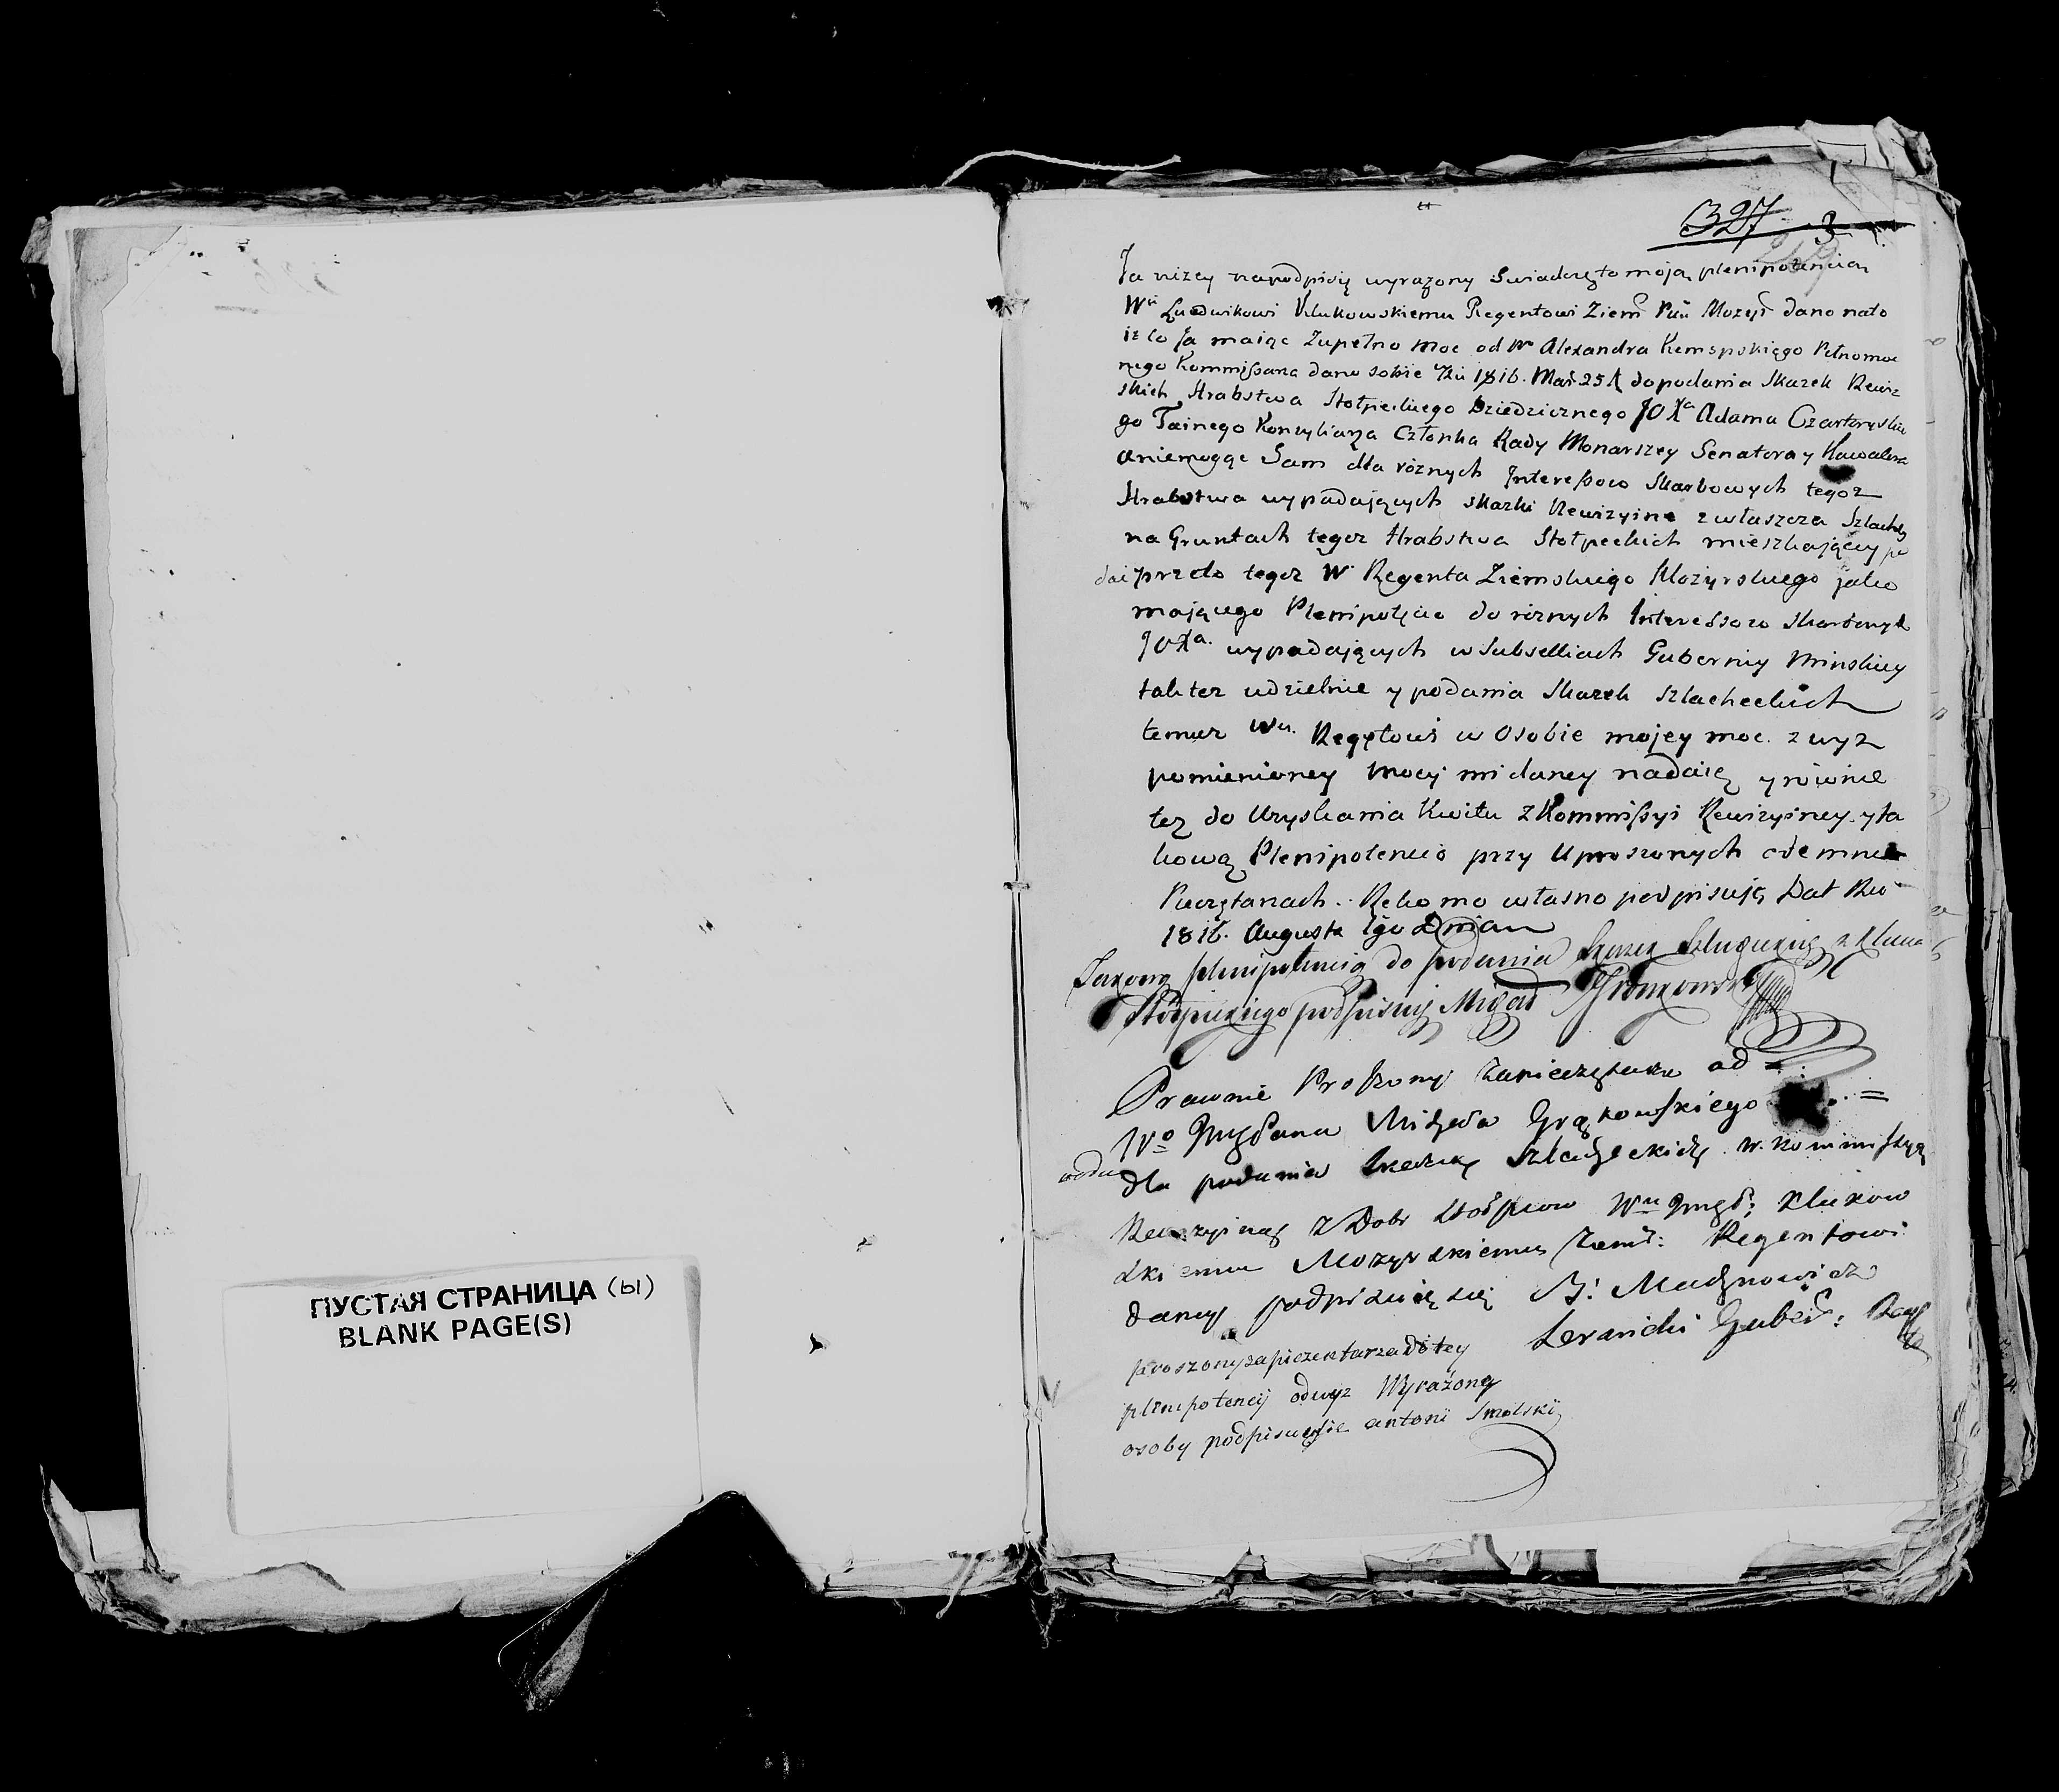 ПУСТАЯ СТРАНИЦА (ы)
BLANK PAGE(S)
327
Ja niżey na podpisię wyrażony Swiadczę to moją plenipotencią
Wu Ludwikowi Klukowskiemu Regentowi Ziem Ptu Mozyr dano na to
iż co Ja maiąc Zupełno moc od W Alexandra Kemspskięgo Pełnomoc
nego Kommissarza dano sobie 1816. Mar 25 do podania Skazek Rewiz
skich Hrabstwa Stołpeckiego Dziedzicznego JOXa Adama Czartoryskie
go Tainego Konsyliarza Członka Rady Monarszey Senatora y Kawalera
a niemogąc Sam dla różnych Interessow Skarbowych tegoż
Hrabstwa wypadaiących skazki Rewizyine zwłaszcza Szlachty
na Gruntach tegoż Hrabstwa Stołpeckich mieszkającey po
dai przeto tegoż W Regenta Ziemskiego Mozyrskiego jako
mającego Plenipotęcio do różnych Interessow Skarbowych
JOXa wypadających w Subselliach Gubernij Minskiey
tak też udzielnie y podania Skazek szlacheckich
temuż Wu Regętowi w Osobie mojey moc z wyż
pomienioney mocy mi daney nadaię y rownie
też do Uzyskania Kwitu z Kommissyi Rewizyiney y ta
kową Plenipotencio przy Uproszonych odemnie
Pieczętarzach. Ręko mo własno podpisuję Dat Ru
1816. Augusta 1go Dnia
Takową plenipotencią do podania Skazek
Stołpeckiego podpisuię Michał
Prawnie Proszony za Pieczętarza od
Wo Jmgpana Michała Grątkowskiego
dla podania Skazkę Szlacheckich w Kommissyą
Rewizyiną z Dobr Stołpcow Wu Jmgp: Klukow
skiemu Mozyrskiemu Ziems: Regentowi
daney podpisuię się B:
Guber: Reg
proszony za pieczentarza do tey
plenipotencij od wyż Wyrażoney
osoby podpisuię sie antoni Smolski